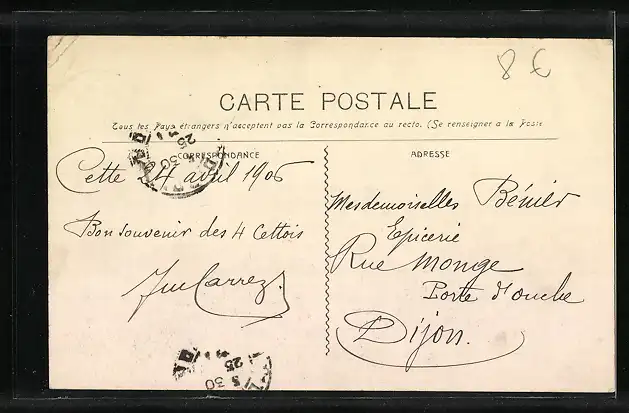 8 €
CARTE POSTALE
Tous les Pays étrangers n'acceptent pas la Correspondance au recto. (Se renseigner a la Poste
CORRESPONDANCE
ADRESSE
Cette 24 avril 1906
Bon souvenir des 4 Cettois
Carrez
Mesdemoiselles Bénier
Epicerie
Rue Monge
Porte d'ouche
Dijon.